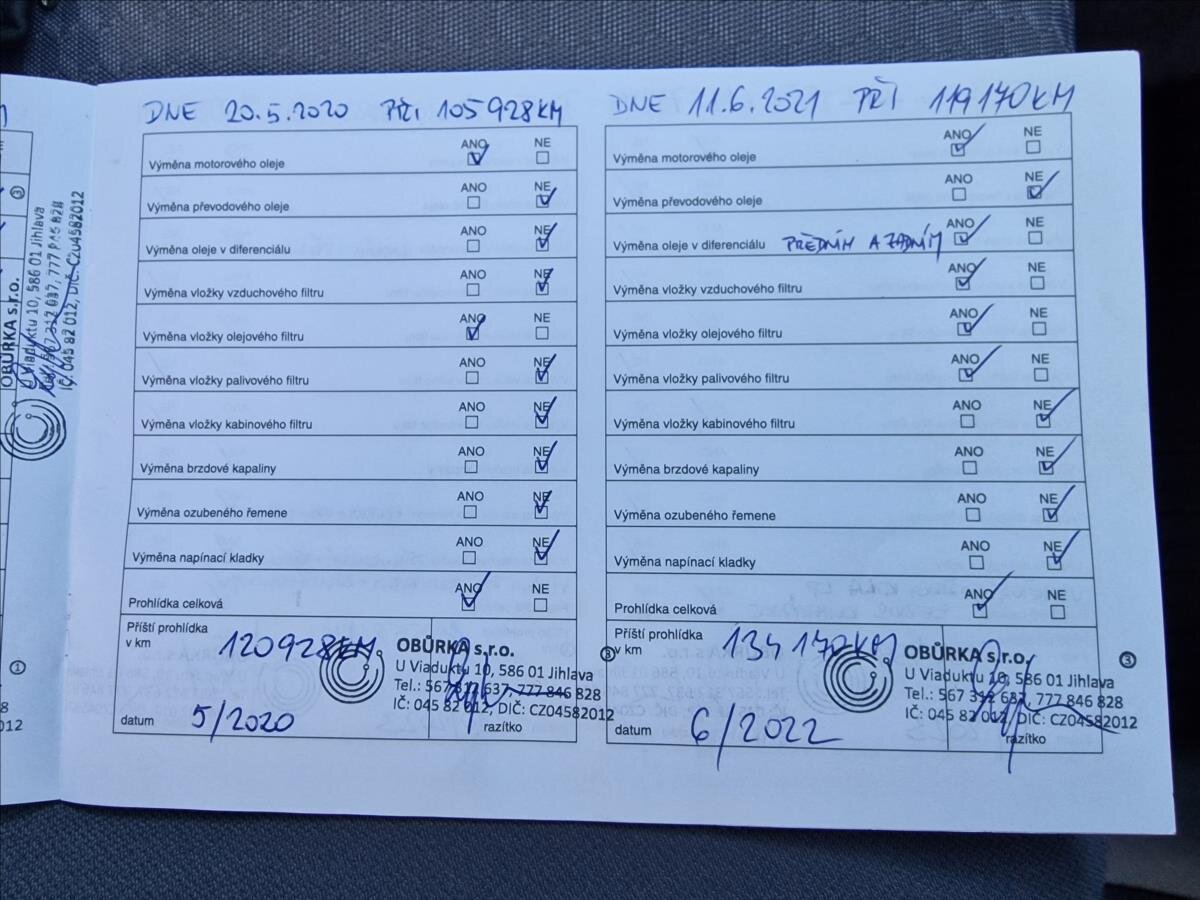 DNE 20.5.2020 PŘI 105928KM
ANO NE
Výměna motorového oleje
ANO NE
Výměna převodového oleje
ANO NE
Výměna oleje v diferenciálu
ANO NE
Výměna vložky vzduchového filtru
ANO NE
Výměna vložky olejového filtru
ANO NE
Výměna vložky palivového filtru
ANO NE
Výměna vložky kabinového filtru
ANO NE
Výměna brzdové kapaliny
ANO NE
Výměna ozubeného řemene
ANO NE
Výměna napínací kladky
ANO NE
Prohlídka celková
Příští prohlídka
v km 120928KM
datum 5/2020
OBŮRKA s.r.o.
U Viaduktu 10, 586 01 Jihlava
Tel.: 567 312 637, 777 846 828
IČ: 045 82 012, DIČ: CZ04582012
razítko
3
DNE 11.6.2021 PŘI 119170KM
ANO NE
Výměna motorového oleje
ANO NE
Výměna převodového oleje
ANO NE
Výměna oleje v diferenciálu PŘEDNÍM A ZADNÍM
ANO NE
Výměna vložky vzduchového filtru
ANO NE
Výměna vložky olejového filtru
ANO NE
Výměna vložky palivového filtru
ANO NE
Výměna vložky kabinového filtru
ANO NE
Výměna brzdové kapaliny
ANO NE
Výměna ozubeného řemene
ANO NE
Výměna napínací kladky
ANO NE
Prohlídka celková
Příští prohlídka
v km 134170KM
datum 6/2022
OBŮRKA s.r.o.
U Viaduktu 10, 586 01 Jihlava
Tel.: 567 312 637, 777 846 828
IČ: 045 82 012, DIČ: CZ04582012
razítko
3
OBŮRKA s.r.o.
U Viaduktu 10, 586 01 Jihlava
567 312 637, 777 846 828
IČ: 045 82 012, DIČ: CZ04582012
3
1